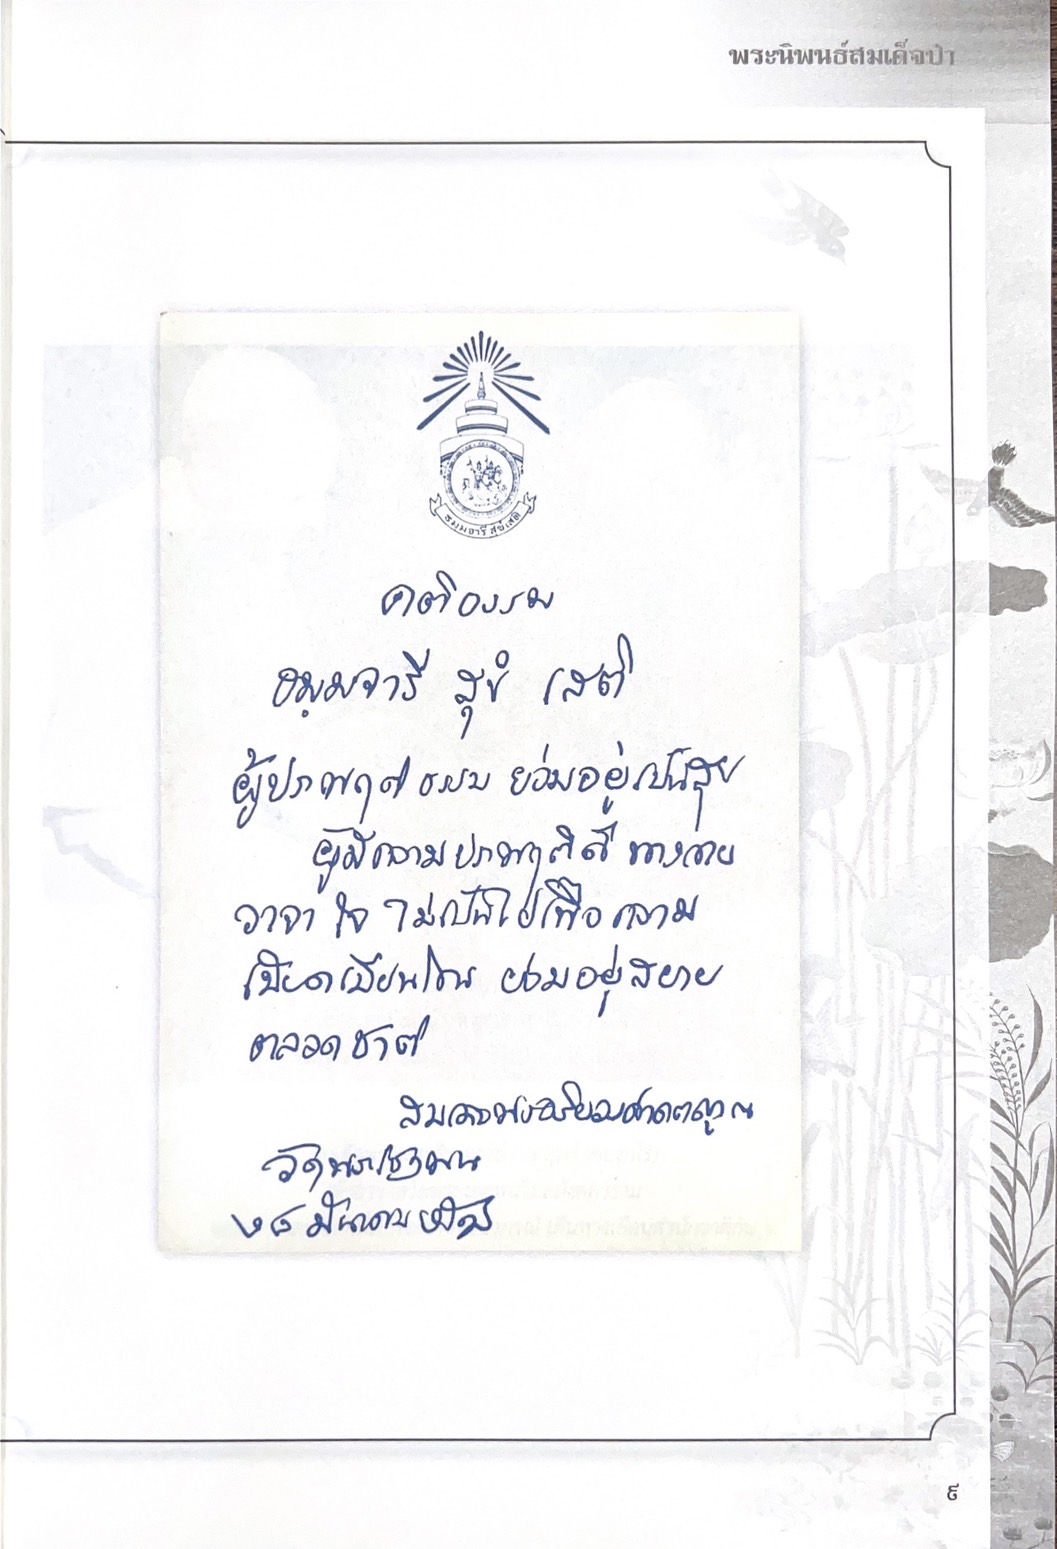 พระนิพนธ์สมเด็จป๋า
ธมฺมจารี สุขํ เสติ
คติธรรม
ธมฺมจารี สุขํ เสติ
ผู้ประพฤติธรรม ย่อมอยู่เป็นสุข
ผู้มีความประพฤติดี ทางกาย
วาจา ใจ ไม่เป็นไปเพื่อความ
เบียดเบียนใคร ย่อมอยู่สบาย
ตลอดชาติ
สมเด็จพระอริยวงศาคตญาณ
วัดพระเชตุพน
๙